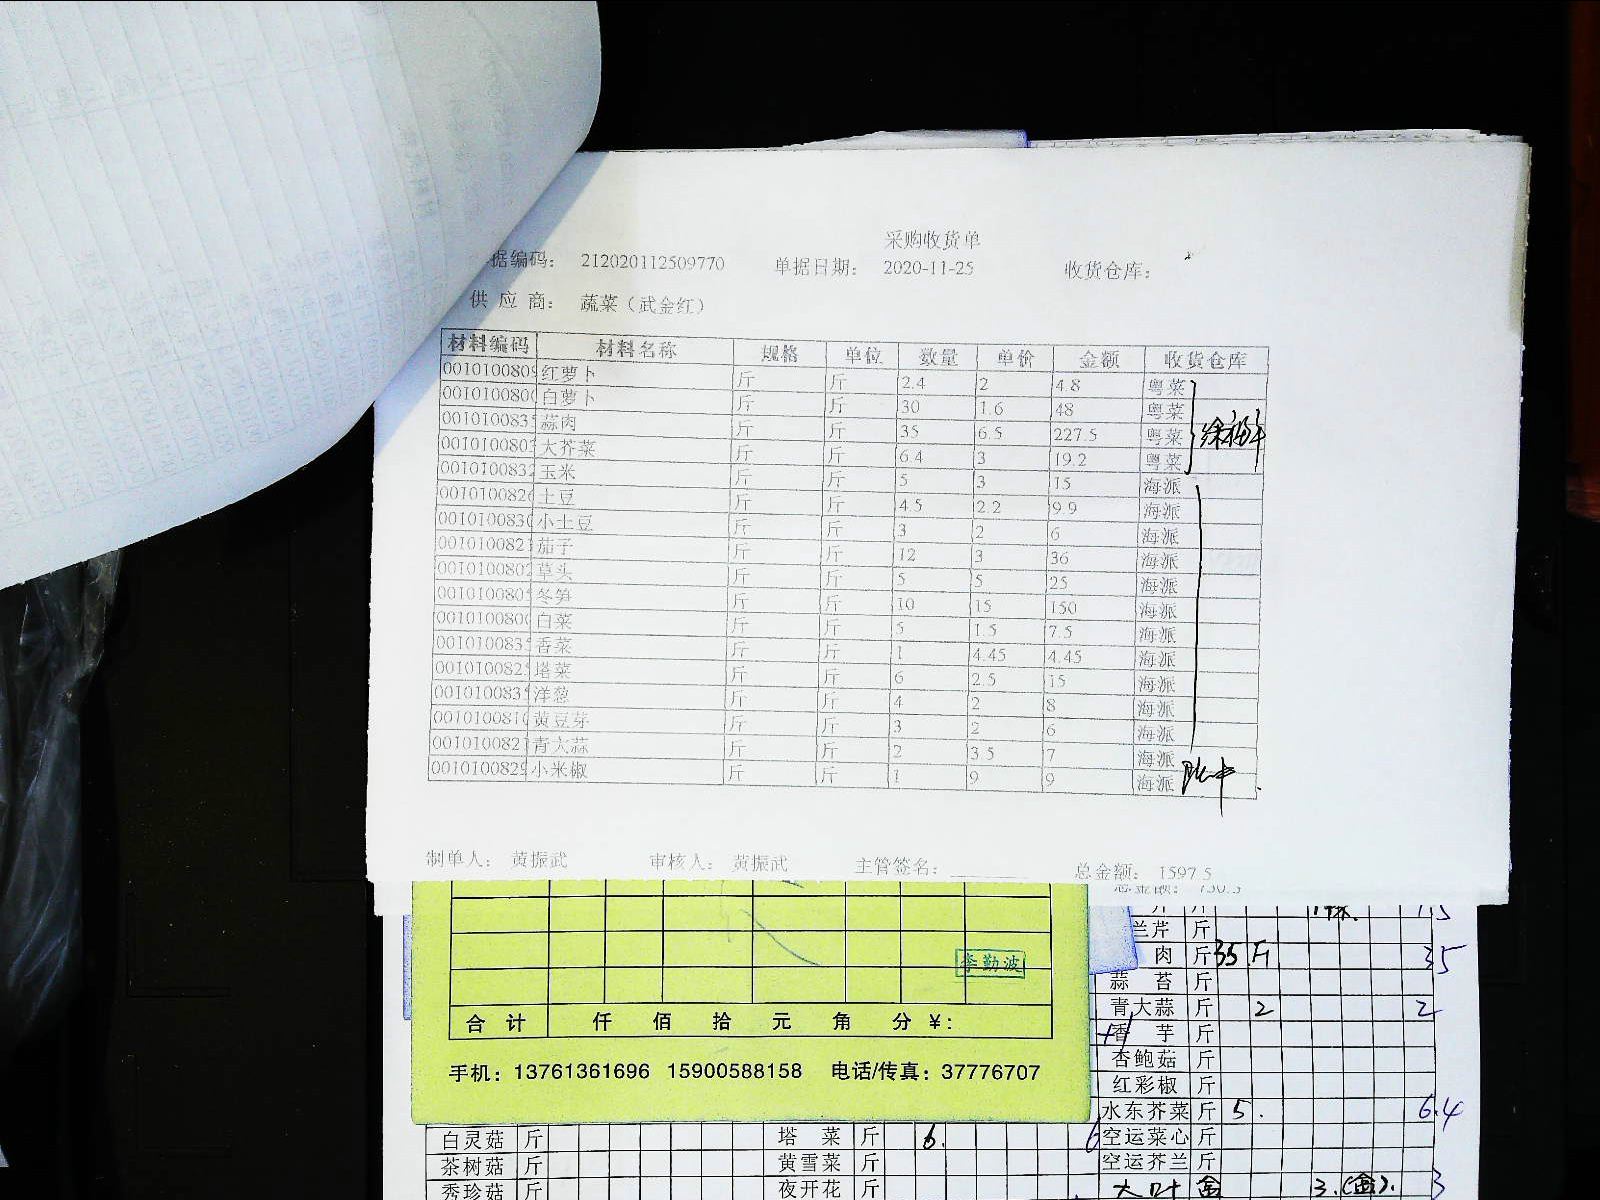 采购收货单
据编码： 212020112509770 单据日期： 2020-11-25 收货仓库：
供 应 商： 蔬菜（武金红）
材料编码 材料名称 规格 单位 数量 单价 金额 收货仓库
001010080 红萝卜 斤 斤 2.4 2 4.8 粤菜
001010080 白萝卜 斤 斤 30 1.6 48 粤菜
001010083 蒜肉 斤 斤 35 6.5 227.5 粤菜
001010080 大芥菜 斤 斤 6.4 3 19.2 粤菜
001010083 玉米 斤 斤 5 3 15 海派
001010082 土豆 斤 斤 4.5 2.2 9.9 海派
001010083 小土豆 斤 斤 3 2 6 海派
001010082 茄子 斤 斤 12 3 36 海派
001010080 草头 斤 斤 5 5 25 海派
001010080 冬笋 斤 斤 10 15 150 海派
001010080 白菜 斤 斤 5 1.5 7.5 海派
001010083 香菜 斤 斤 1 4.45 4.45 海派
001010082 塔菜 斤 斤 6 2.5 15 海派
001010083 洋葱 斤 斤 4 2 8 海派
001010081 黄豆芽 斤 斤 3 2 6 海派
001010082 青大蒜 斤 斤 2 3.5 7 海派
001010082 小米椒 斤 斤 1 9 9 海派
制单人： 黄振武 审核人： 黄振武 主管签名： 总金额： 1597.5
兰芹 斤
肉 斤 35斤 35
李勤波
蒜 苔 斤
青大蒜 斤 2 2
合 计 仟 佰 拾 元 角 分 ¥：
香 芋 斤
杏鲍菇 斤
手机：13761361696 15900588158 电话/传真：37776707
红彩椒 斤
水东芥菜 斤 5. 6.4
白灵菇 斤 塔 菜 斤 6. 6 空运菜心 斤
茶树菇 斤 黄雪菜 斤 空运芥兰 斤
秀珍菇 斤 夜开花 斤 3 3